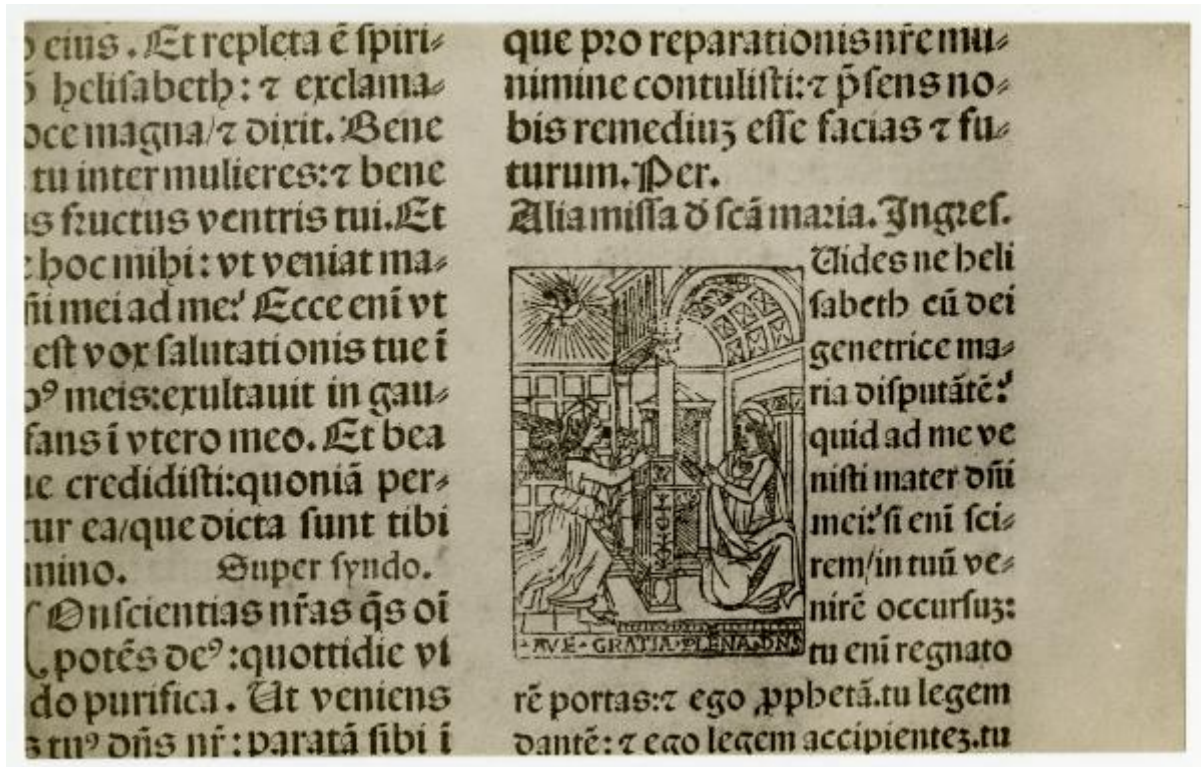 eius. Et repleta ē ſpiri⸗
heliſabeth: ⁊ exclama⸗
oce magna/⁊ dixit. Bene
tu inter mulieres:⁊ bene
us fructus ventris tui. Et
hoc mihi: vt veniat ma⸗
ñi mei ad me? Ecce enī vt
eſt vox ſalutationis tue ī
bꝰ meis:exultauit in gau⸗
fans ī vtero meo. Et bea
ue credidiſti:quoniā per⸗
tur ea/que dicta ſunt tibi
mino. Super ſyndo.
COnſcientias nr̄as q̄s oī
potēs deꝰ:quottidie vi
do purifica. Ut veniens
s tuꝰ dñs nr̄: paratā ſibi ī
que pro reparationis nr̄e mu⸗
nimine contuliſti:⁊ p̄ſens no⸗
bis remediuꝫ eſſe facias ⁊ fu⸗
turum. Per.
Alia miſſa ď ſcā maria. Ingreſ.
Uides ne heli
ſabeth cū dei
genetrice ma⸗
ria diſputātē?
quid ad me ve
niſti mater dñi
mei?ſi enī ſci⸗
rem/in tuū ve⸗
nirē occurſuꝫ:
tu enī regnato
rē portas:⁊ ego ꝓphetā.tu legem
dantē: ⁊ ego legem accipienteꝫ.tu
AVE·GRATIA·PLENA·DNS